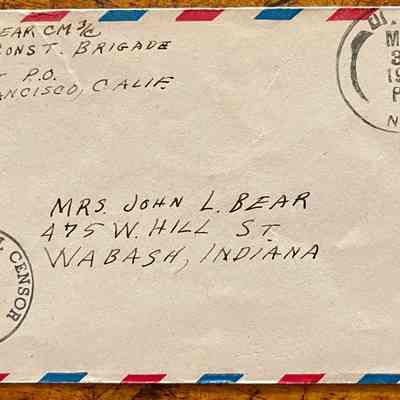 EAR CM 3/C
CONST. BRIGADE
T P.O.
ANCISCO, CALIF.
U.
M
3
19
P
N
MRS. JOHN L. BEAR
475 W. HILL ST.
WABASH, INDIANA
CENSOR